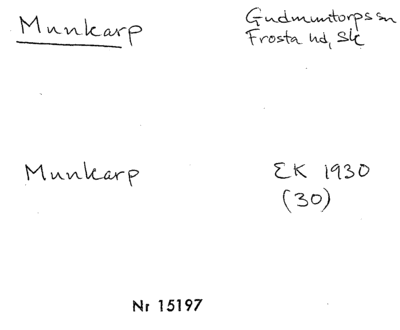 Munkarp
Gudmuntorps sn
Frosta hd, Sk
Munkarp
EK 1930
(30)
Nr 15197